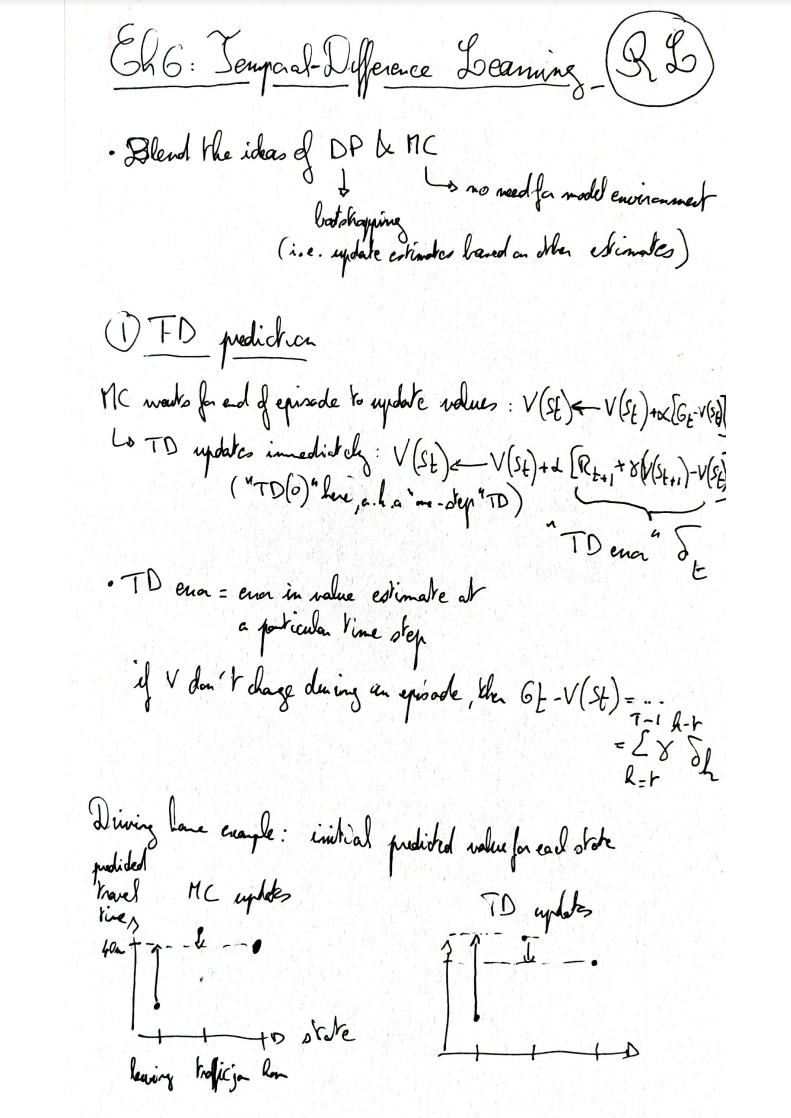 Ch 6: Temporal-Difference Learning RL
• Blend the ideas of DP & MC
↳ no need for model environment
↓
bootstrapping
(i.e. update estimates based on other estimates)
① TD prediction
MC waits for end of episode to update values : V(St) ← V(St)+α[Gt-V(St)]
↳ TD updates immediately : V(St) ← V(St)+α [Rt+1 + γV(St+1)-V(St)]
("TD(0)" here, a.k.a "one-step" TD)
"TD error" δt
• TD error = error in value estimate at
a particular time step
if V don't change during an episode, then Gt - V(St) = ...
= Σ_{k=t}^{T-1} γ^{k-t} δk
Driving home example : initial predicted value for each state
predicted
travel
time
MC updates
TD updates
40m
state
leaving traffic jam home